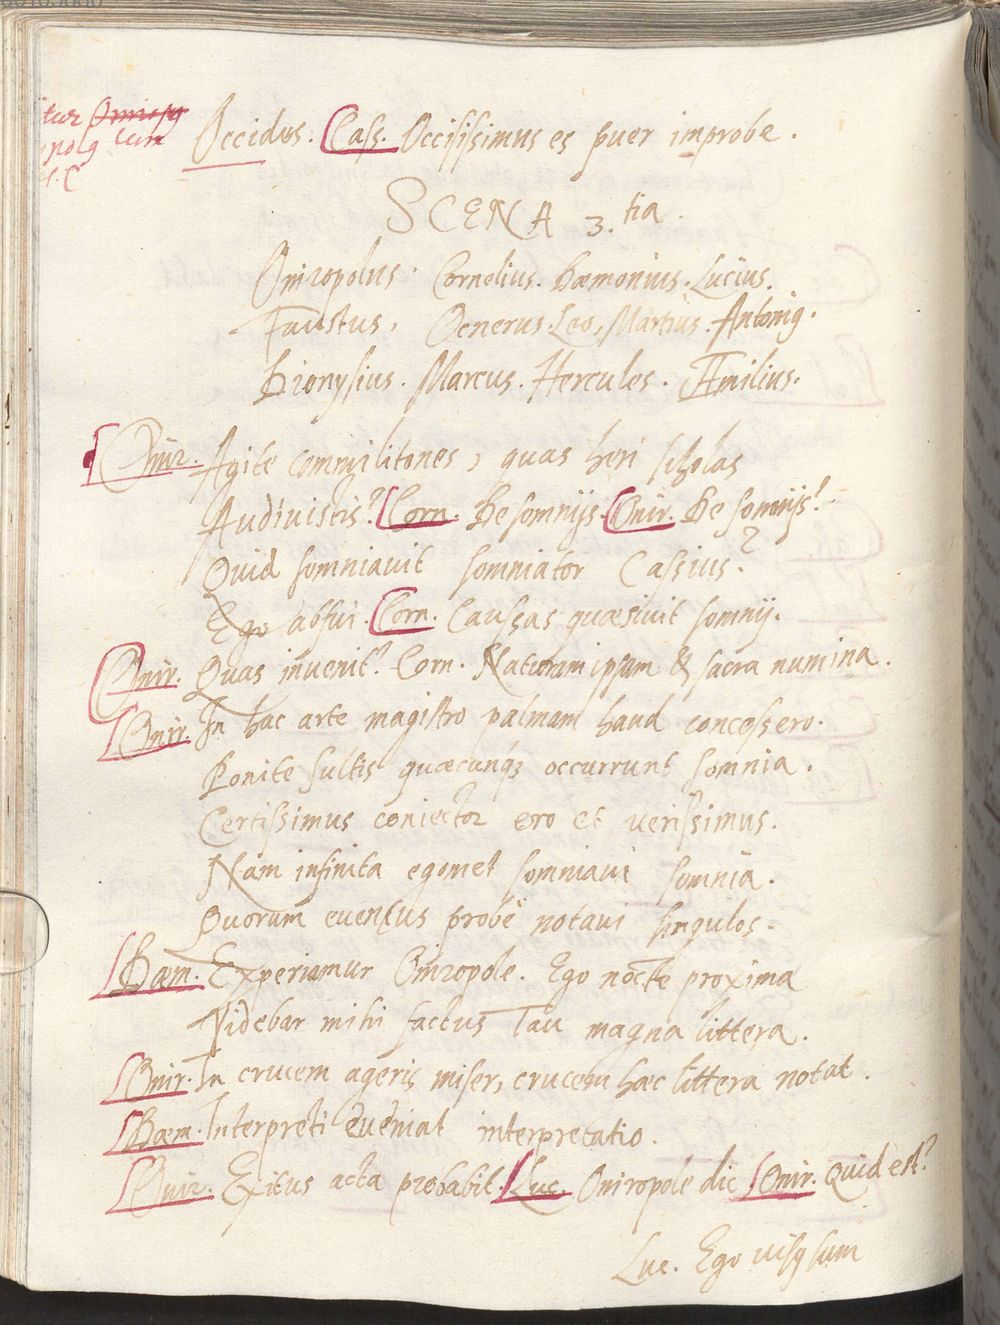 Occidus. Cass. Occisissimus es puer improbe.
SCENA 3.tia.
Oniropolus. Cornelius. Dæmonius. Lucius.
Faustus, Venerus. Leo, Martius. Antoni9.
Dionysius. Marcus. Hercules. Æmilius.
Onir. Agite commilitones, quas heri scholas
Audiuistis? Corn. De somnijs. Onir. De somnijs!
Quid somniauit somniator Cassius?
Ego abfui. Corn. Caussas quæsiuit somnij.
Onir. Quas inuenit? Corn. Naturam ipsam & sacra numina.
Onir. In hac arte magistro palmam haud concessero.
Ponite sultis quæcunq3 occurrunt somnia.
Certissimus coniector ero et verissimus.
Nam infinita egomet somniaui somnia.
Quorum euentus probè notaui singulos.
Dæm. Experiamur Oniropole. Ego nocte proxima
Videbar mihi factus Tau magna littera.
Onir. In crucem ageris miser, crucem hæc littera notat.
Dæm. Interpreti eueniat interpretatio.
Onir. Exitus acta probabit. Luc. Oniropole dic. Onir. Quid est?
Luc. Ego visq sum